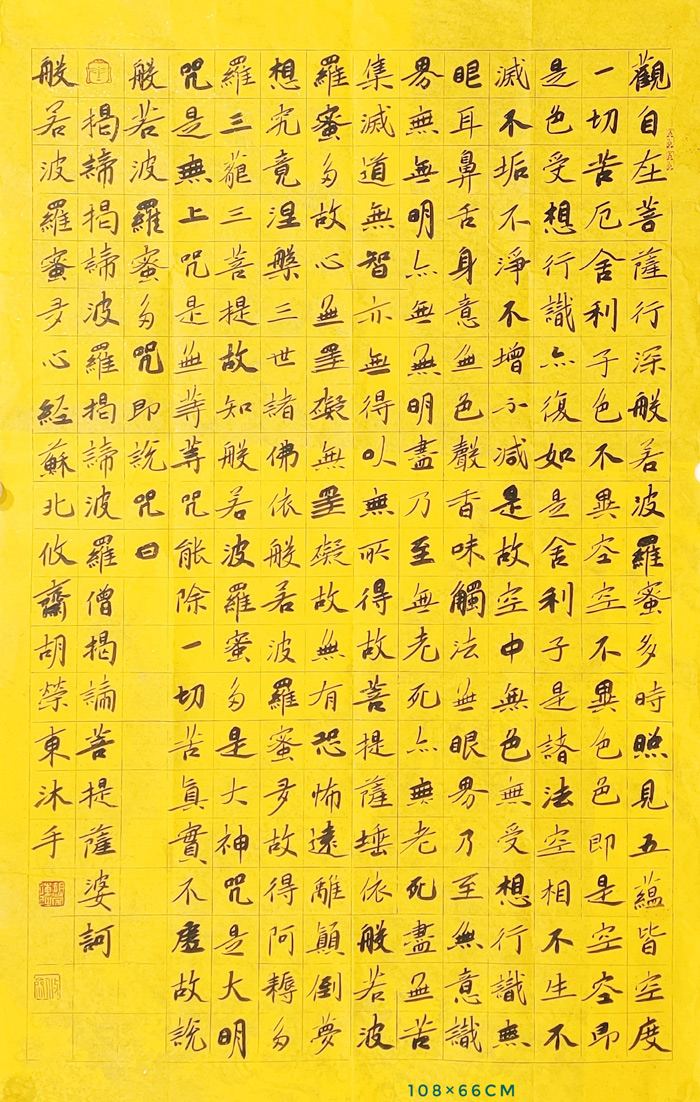 觀自在菩薩行深般若波羅蜜多時照見五蘊皆空度
一切苦厄舍利子色不異空空不異色色即是空空即
是色受想行識亦復如是舍利子是諸法空相不生不
滅不垢不淨不增不减是故空中無色無受想行識無
眼耳鼻舌身意無色聲香味觸法無眼界乃至無意識
界無無明亦無無明盡乃至無老死亦無老死盡無苦
集滅道無智亦無得以無所得故菩提薩埵依般若波
羅蜜多故心無罣礙無罣礙故無有恐怖遠離顛倒夢
想究竟涅槃三世諸佛依般若波羅蜜多故得阿耨多
羅三藐三菩提故知般若波羅蜜多是大神咒是大明
咒是無上咒是無等等咒能除一切苦真實不虛故說
般若波羅蜜多咒即說咒曰
揭諦揭諦波羅揭諦波羅僧揭諦菩提薩婆訶
般若波羅蜜多心經蘇北攸齋胡榮東沐手
108×66CM